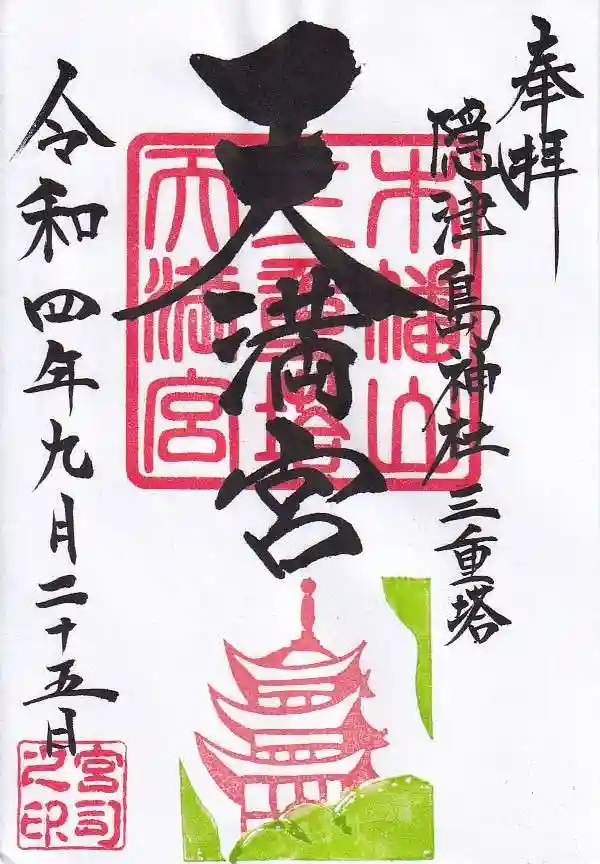 奉拝
隠津島神社 三重塔
天満宮
令和四年九月二十五日
木幡山
三重塔
天満宮
宮司
之印